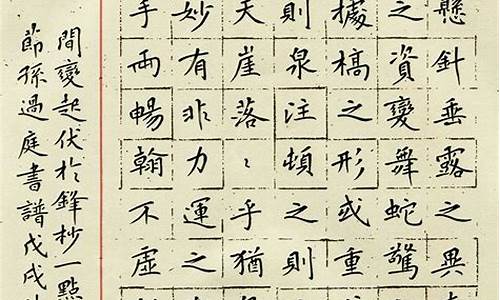 懸針垂露之異
之資變舞蛇驚
據槁之形或重
則泉注頓之則
天崖落〻乎猶
妙有非力運之
手兩暢翰不虛
間變起伏於鋒杪一點
節孫過庭書譜戊戌